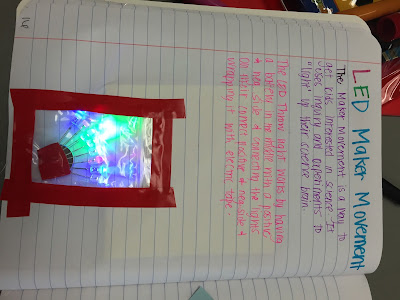 LED Maker Movement
The Maker Movement is a way to
get kids interested in science. It
uses inquiry and experiments to
"light" up their science brain.
The LED Throw light works by having
a battery in the middle with a positive
& neg. side & connecting the lights
on their correct positive & neg. side &
wrapping it with electric tape.